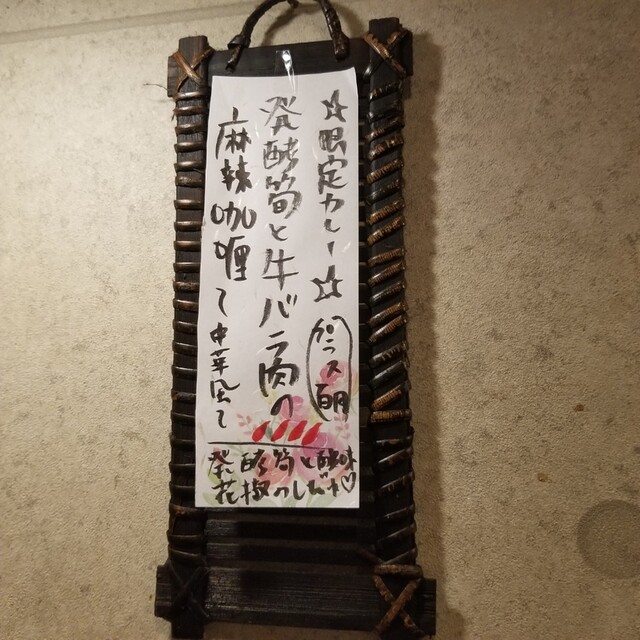 ☆限定カレー☆
発酵筍と牛バラ肉の
麻辣咖喱 〜中華風〜
発酵筍の酸味
花椒のしびれ♡